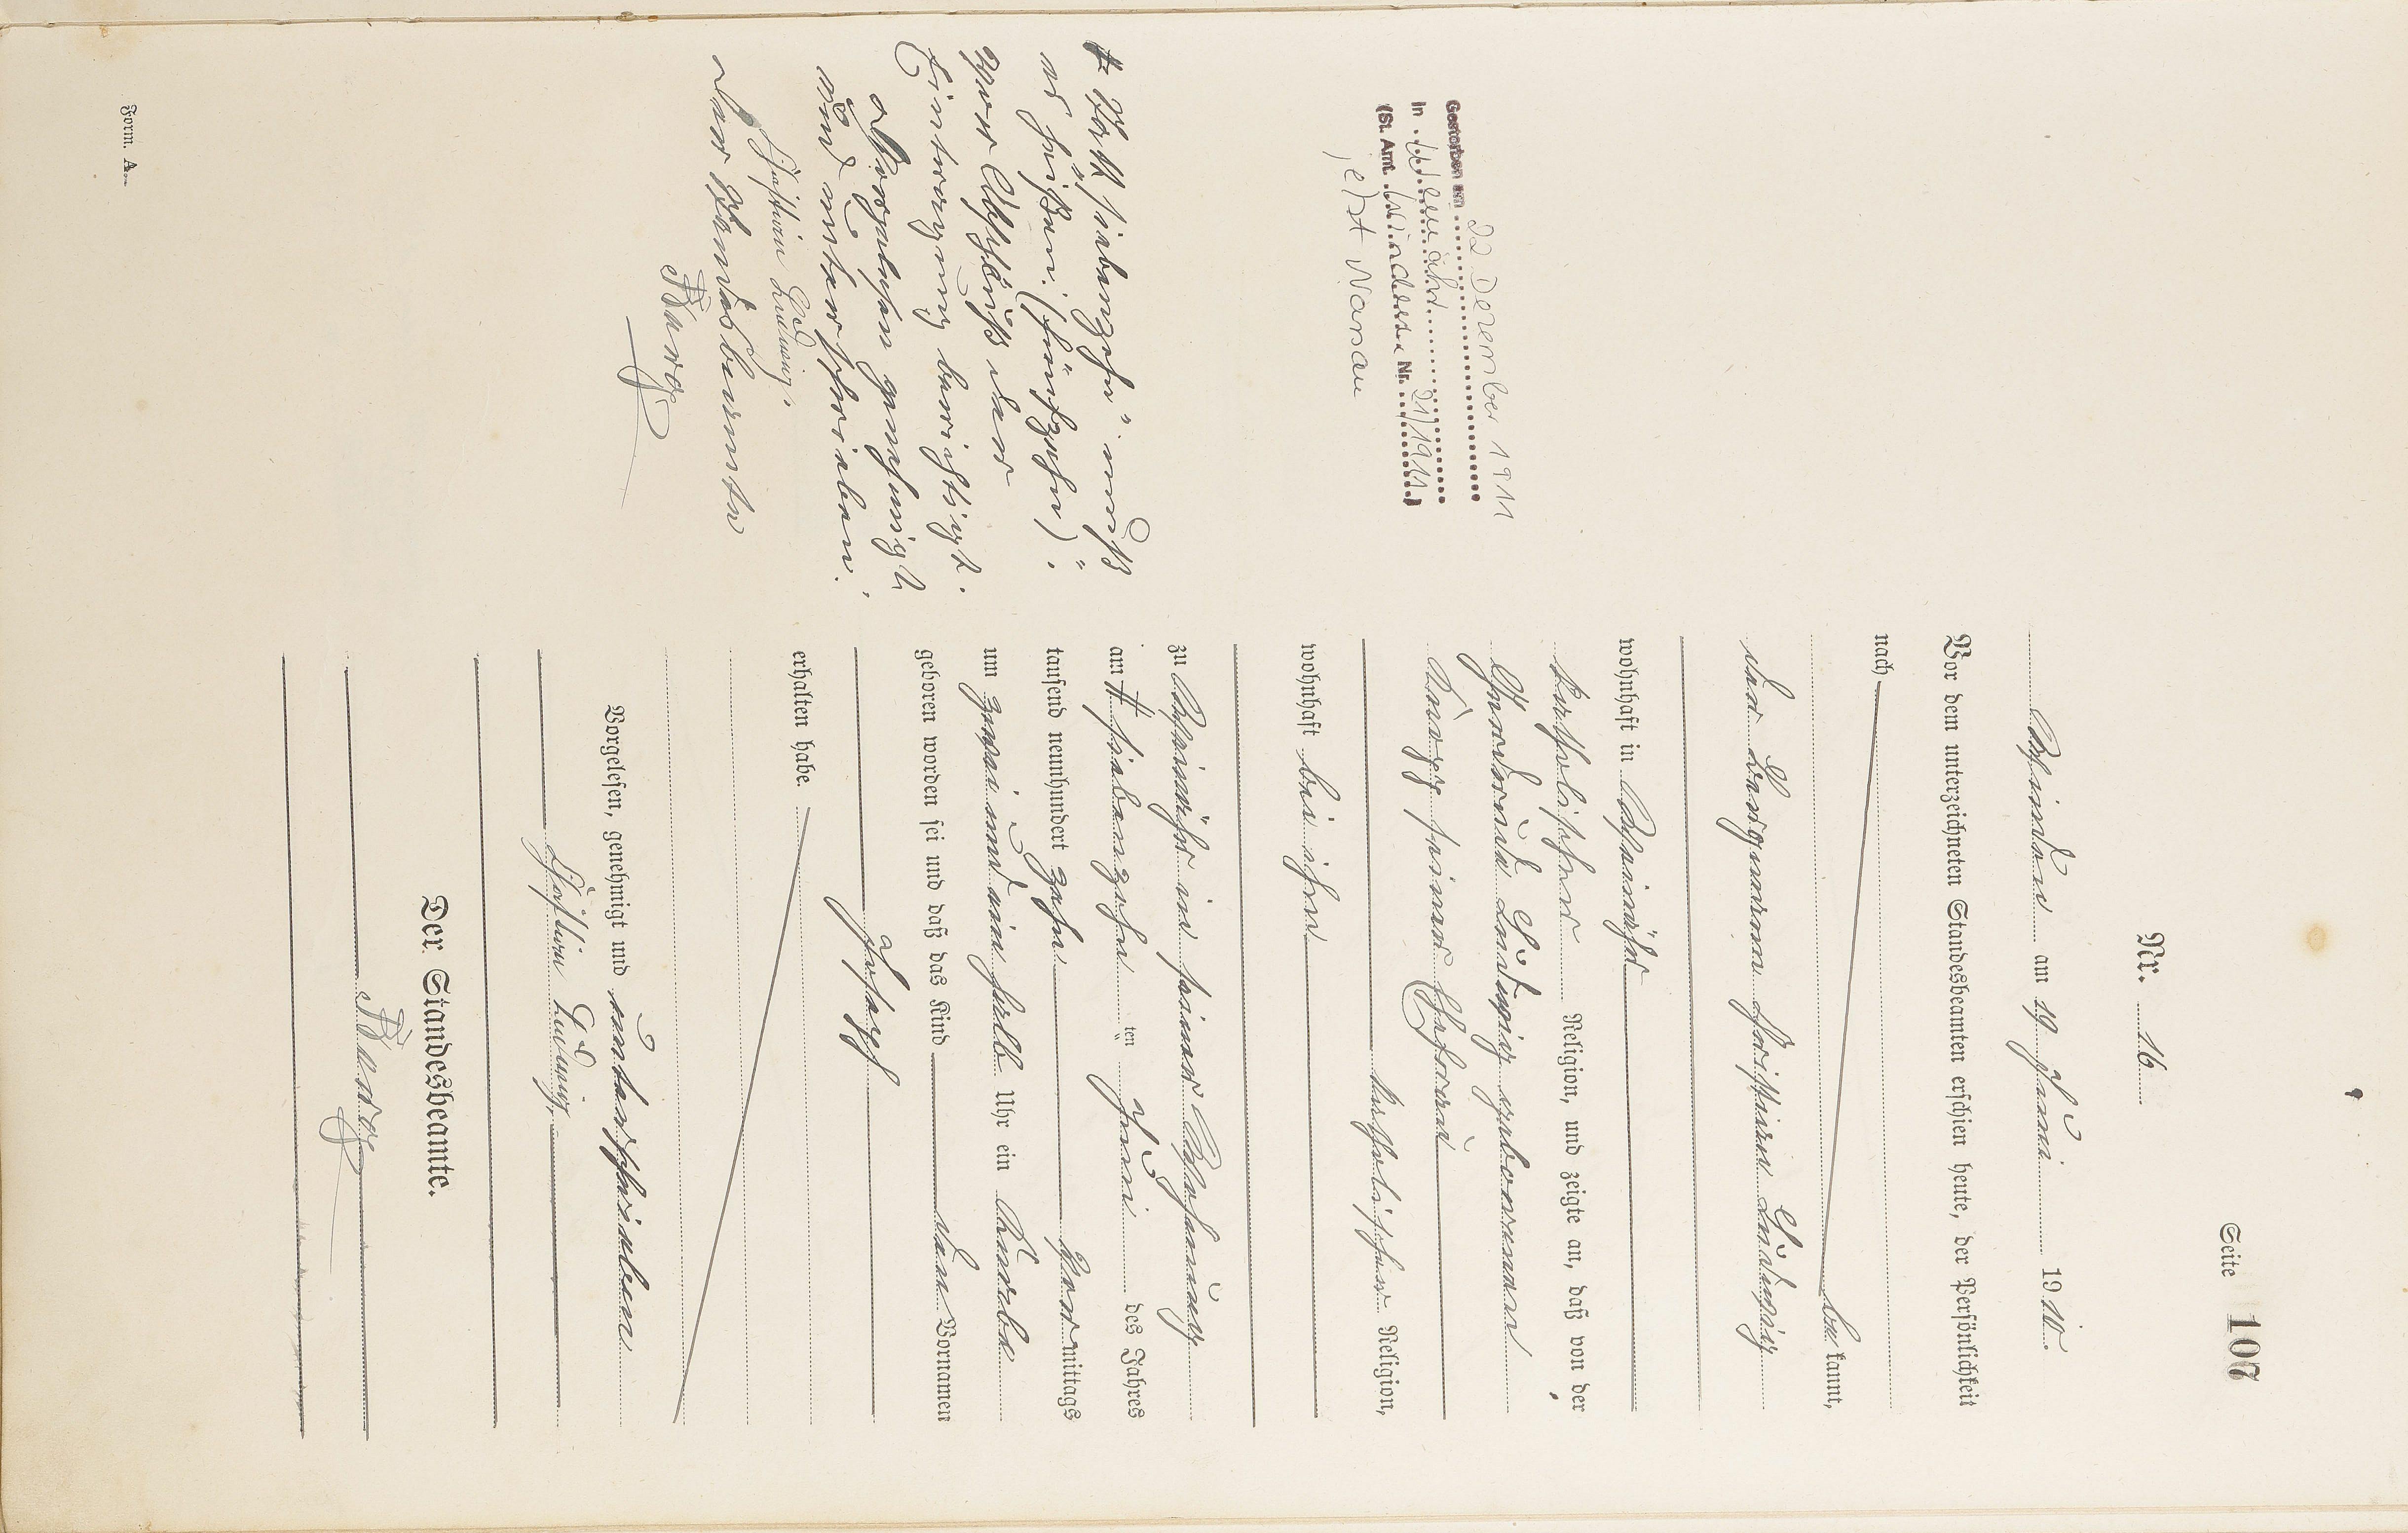 Seite 107
Nr. 16
Winden am 19 Juni 1910.
Vor dem unterzeichneten Standesbeamten erschien heute, der Persönlichkeit
nach
bekannt,
der Bergmann Christian Ludwig
wohnhaft in Weinähr
katholischer Religion, und zeigte an, daß von der
Gertrud Ludwig geborenen
seiner Ehefrau
katholischer Religion,
wohnhaft bei ihm
zu Weinähr in seiner Wohnung
am # siebenzehn ten Juni des Jahres
tausend neunhundert zehn Vormittags
um zwei und ein halb Uhr ein Knabe
geboren worden sei und daß das Kind den Vornamen
Joseph
erhalten habe.
Vorgelesen, genehmigt und unterschrieben
Christian Ludwig
Der Standesbeamte.
Gestorben am 22 Dezember 1911
in Weinähr
(St. Amt Winden Nr. 21/1911)
jetzt Nassau
# Statt „siebenzehn“ muß
es heißen: „(fünfzehn)“.
Vor Abschluß der
Eintragung berichtigt.
Vorgelesen genehmigt
und unterschrieben.
Christian Ludwig.
Der Standesbeamte
Form. A.